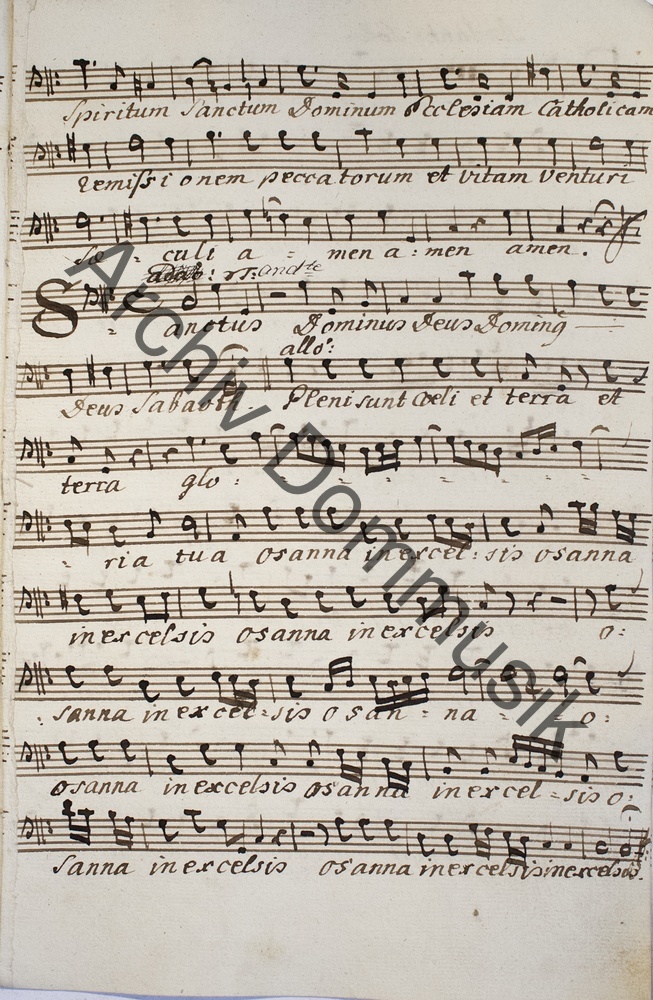 Spiritum Sanctum Dominum Ecclesiam Catholicam
remissionem peccatorum et vitam Venturi
sæ - culi a - men a: men amen.
and:te
Sanctus Dominus Deus Doming
allo:
Deus Sabaoth. Pleni sunt Cæli et terra et
terra glo: - - - - - -
- ria tua osanna in excel: sis osanna
in excelsis osanna in excelsis o:
: sanna in excel=sis o san - na - o:
osanna in excelsis osanna in excel=sis o:
sanna in excelsis osanna in excelsis in excelsis.
Archiv Dommusik